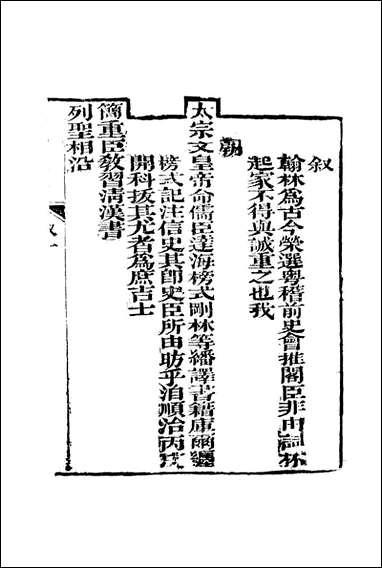 叙
翰林爲古今榮選粤稽前史會推閣臣非由詞林
起家不得與誠重之也我
朝
太宗文皇帝命儒臣達海榜式剛林等繙譯書籍庫爾纏
榜式記注信史其卽史臣所由昉乎洎順治丙戌
開科拔其尤者爲庶吉士
簡重臣敎習淸漢書
列聖相沿